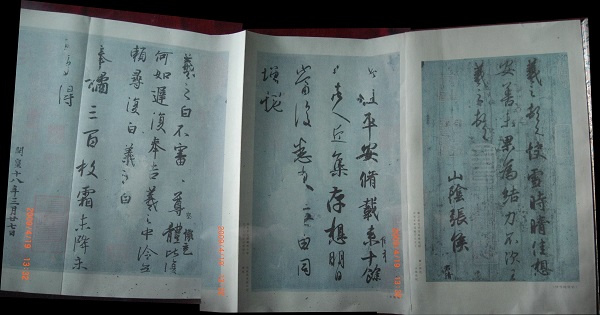 羲之頓首快雪時晴佳想
安善未果為結力不次王
羲之頓首
山陰張侯
平安脩載來十餘
人近集存想明日
當復悉來無由同
增慨
羲之白不審尊體比復
何如遲復奉告羲之中冷無
賴尋復白羲之白
奉橘三百枚霜未降未
可多得
開皇十八年三月廿七日